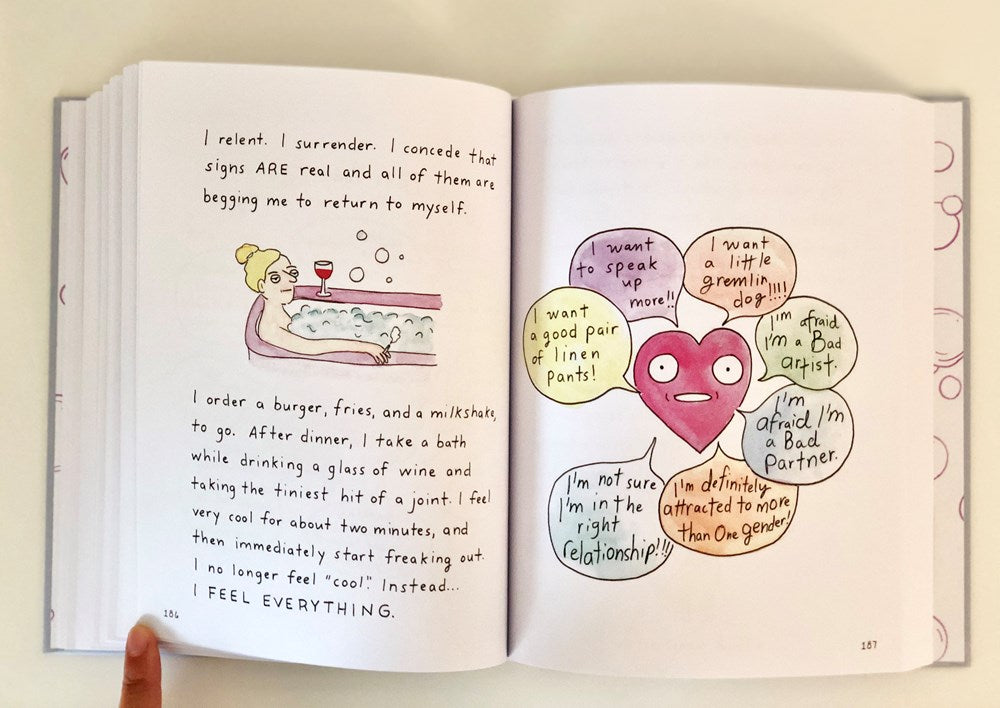 I relent. I surrender. I concede that
signs ARE real and all of them are
begging me to return to myself.
I order a burger, fries, and a milkshake,
to go. After dinner, I take a bath
while drinking a glass of wine and
taking the tiniest hit of a joint. I feel
very cool for about two minutes, and
then immediately start freaking out.
I no longer feel "cool." Instead...
I FEEL EVERYTHING.
186
I want
to speak
up
more!!
I want
a little
gremlin
dog!!!!
I want
a good pair
of linen
pants!
I'm afraid
I'm a Bad
artist.
I'm
afraid I'm
a Bad
Partner.
I'm not sure
I'm in the
right
relationship!!!
I'm definitely
attracted to more
than One gender!
187